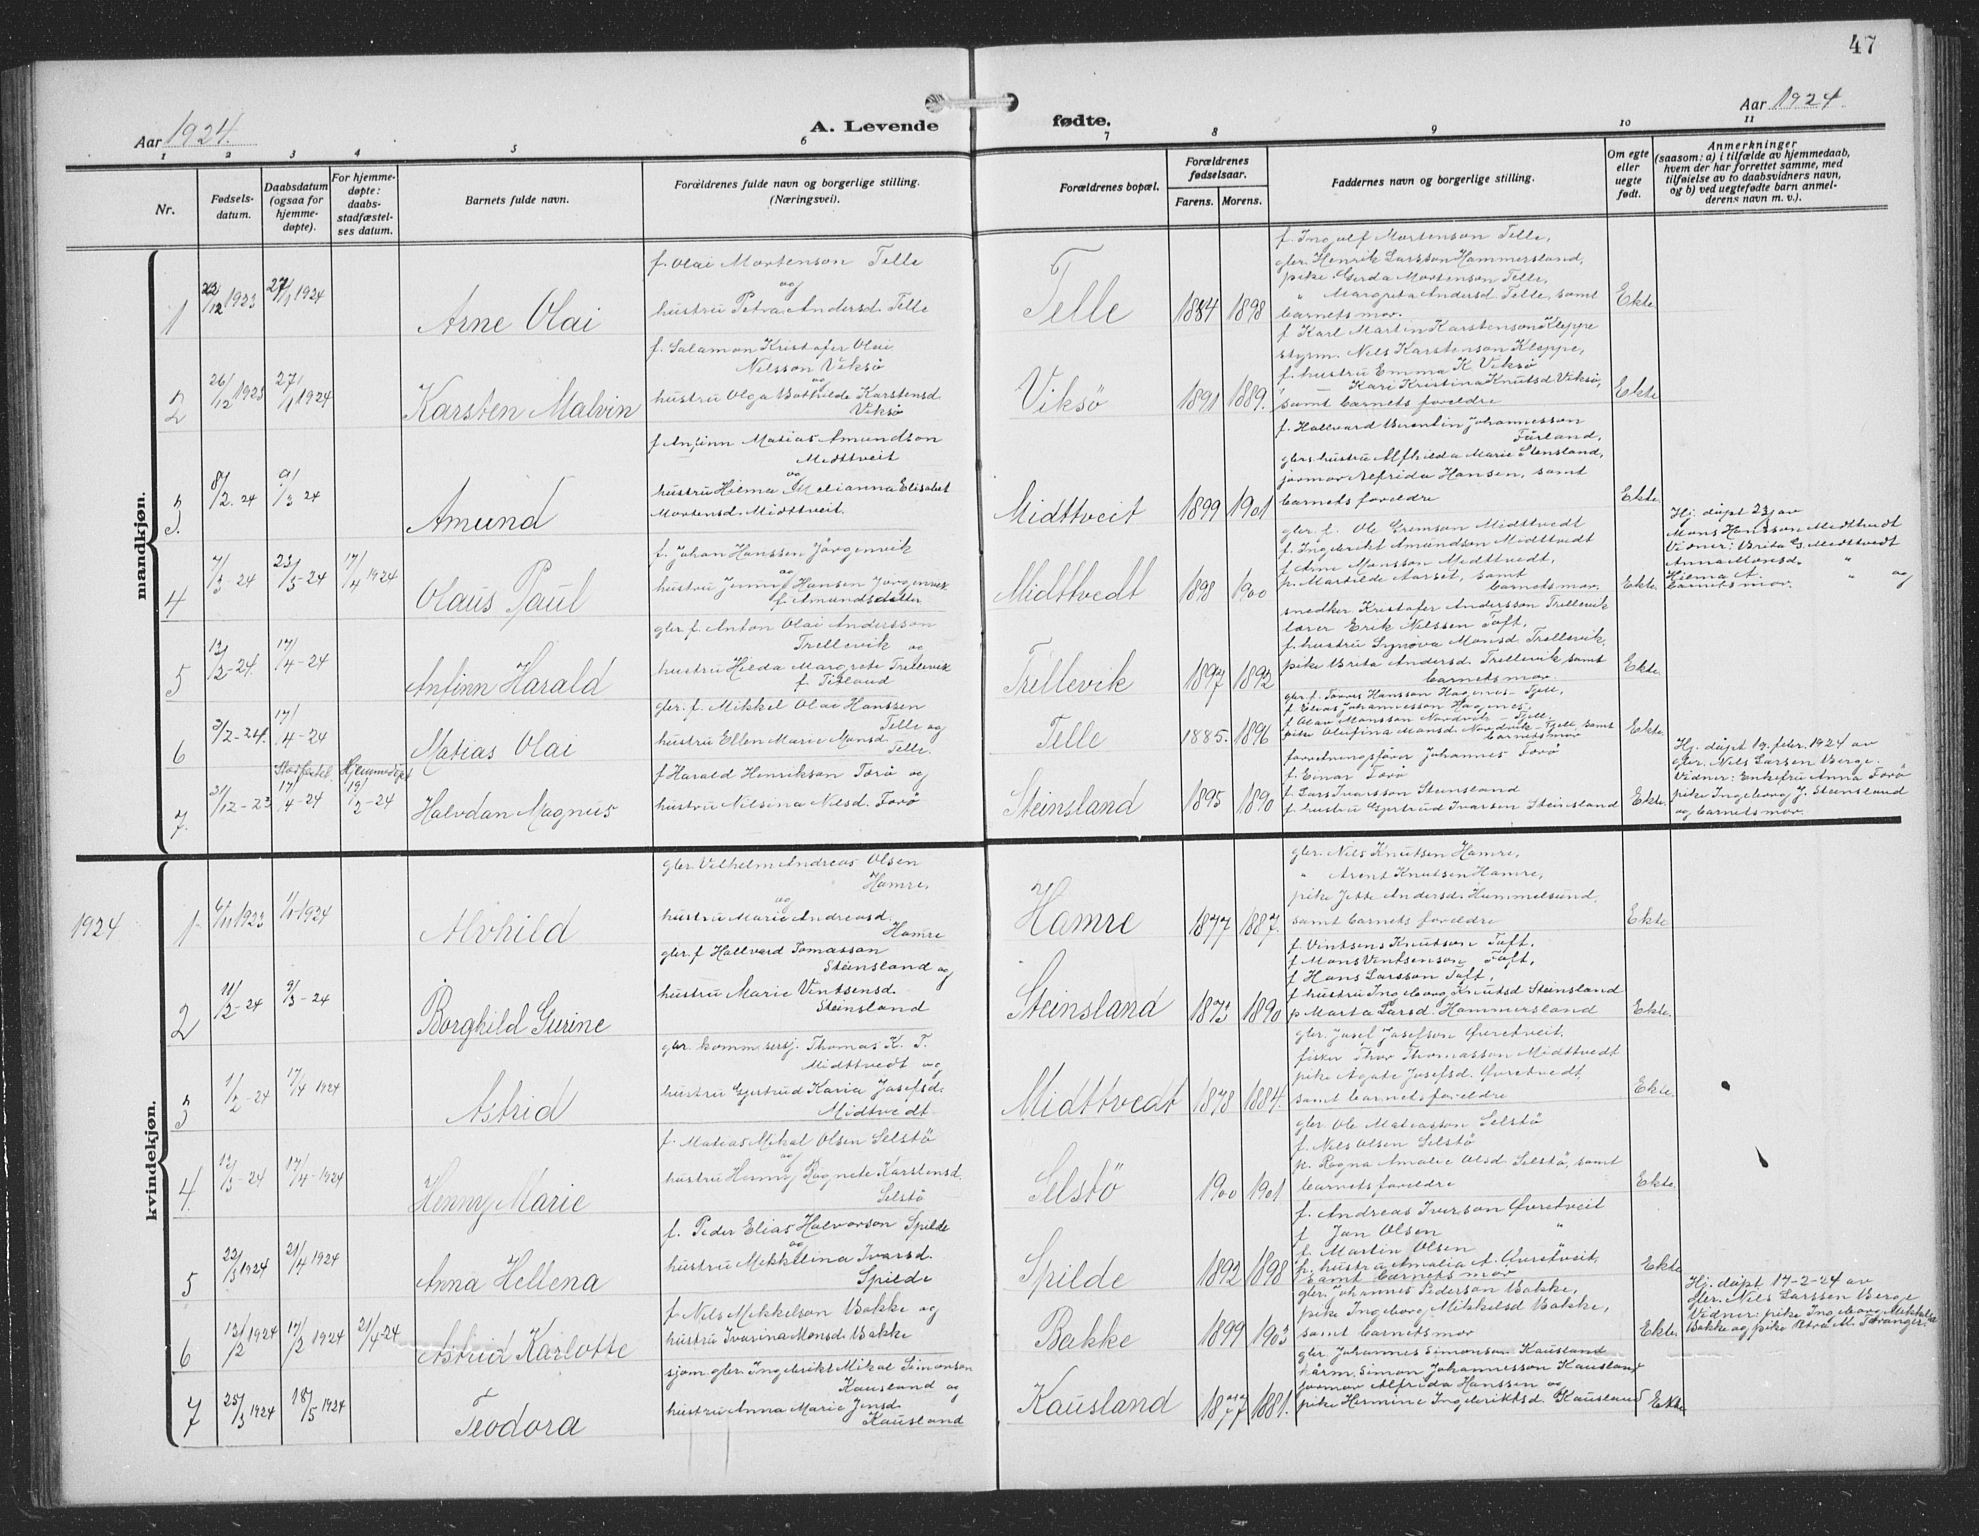 47
Aar 1924.
A. Levende fødte.
Aar 1924.
1 2 3 4 5 6 7 8 9 10 11
Nr.
Fødsels-
datum.
Daabsdatum
(ogsaa for
hjemme-
døpte).
For hjemme-
døpte:
daabs-
stadfæstel-
ses datum.
Barnets fulde navn.
Forældrenes fulde navn og borgerlige stilling.
(Næringsvei).
Forældrenes bopæl.
Forældrenes
fødselsaar.
Farens. Morens.
Faddernes navn og borgerlige stilling.
Om egte
eller
uegte
født.
Anmerkninger
(saasom: a) i tilfælde av hjemmedaab,
hvem der har forrettet samme, med
tilføielse av to daabsvidners navn,
og b) ved uegtefødte barn anmel-
derens navn m. v.).
mandkjøn.
1
22/12 1923
27/1 1924
Arne Olai
f. Olai Mortenson Telle
og
hustru Petra Andersd. Telle
Telle
1884 1898
f. Ingolf Mortenson Telle,
gbr. Henrik Larsson Hammersland,
pike Gerda Mortenson Telle,
" Margreta Andersd. Telle, samt
barnets mor.
Ekte
2
26/12 1923
27/1 1924
Karsten Malvin
f. Salamon Kristofer Olai
Nilsson Viksö
og
hustru Olga Bothilde Karstensd.
Viksö
Viksö
1891 1889.
f Karl Martin Karstenson Kleppe
styrm. Nils Karstenson Kleppe,
f. hustru Emma K. Viksö
— Kari Kristina Knutsd. Viksö,
samt barnets foreldre
Ekte
3.
8/2. 24
9/3 24
Amund
f Anfinn Matias Amundson
Midttveit
og
hustru Hilma Melianna Elisabet
Mortensd. Midttveit.
Midttveit
1899 1901
f. Hallvard Berentin Johannesson
Førland,
gbrs hustru Alfhilda Marie Stensland,
jormor Alfrida Hansen, samt
barnets foreldre
Ekte
4
7/3 - 24
23/3 - 24
17/4 1924
Olaus Paul
f. Johan Hanssen Jörgenvik
og
hustru Jenny Hansen Jörgenvik
f. Amundsdatter
Midttvedt
1898 1900
gbr. f. Ole Gremson Midttvedt
f. Ingebrikt Amundsen Midttvedt
f. Arne Monsson Midttvedt,
p. Martilde Aarset, samt
barnets mor.
Ekte.
Hj. døpt 23/3 av
Mons Hansson Midttvedt
Vidner: Brita G. Midttvedt
Anna Monsd. " og
Hilma A. "
barnets mor.
5
13/2 - 24.
17/4 - 24
Anfinn Harald
gbr. f. Anton Olai Andersson
Trellevik og
hustru Hilda Margrete Trellevik
Trellevik
1897 1892
snedker Kristofer Andersson Trellevik
lærer Erik Nilssen Toft,
f. hustru Synöva Monsd. Trellevik,
pike Brita Andersd. Trellevik samt
barnets mor.
Ekte.
6
3/2 - 24.
17/4 - 24
Matias Olai
gbr. f. Mikkel Olai Hanssen
Telle og
hustru Ellen Marie Monsd.
Telle.
Telle
1885. 1896
gbr. f. Torris Hansson Hagenes - Fjell,
f. Elias Johannesson Hagenes,
f Olav Monsson Nordvik - Fjell.
pike Olufina Monsd. Nordvik - Fjell, samt
barnets mor
Ekte.
7.
31/12 - 23
Stadfestel.
17/4 - 24
Hjemmedøpt
19/2 - 24
Halvdan Magnus
f Harald Henrikson Torö og
hustru Nilsina Nilsd. Torö
Steinsland
1895 1890
forretningsförer Johannes Torö
f. Einar Torö
f. Lars Ivarsson Steinsland
f. hustru Gjertrud Ivarsen Steinsland
Ekte.
Hj. døpt 19. febr. 1924 av
gbr. Nils Larsen Berge.
Vidner: Enkefru Anna Torö
pike Ingeborg J. Steinsland
og barnets mor.
kvindekjøn.
1924
1
6/11 1923
1/1 1924
Alvhild
gbr. Vilhelm Andreas Olsen
Hamre,
og
hustru Marie Andreasd.
Hamre
Hamre
1877 1887.
gbr. Nils Knutsen Hamre,
" Arent Knutsen Hamre,
pike Jette Andersd. Hummelsund,
samt barnets foreldre
Ekte
2
11/2 - 24
9/3 - 24
Borghild Gurine
gbr. f Hallvard Tomasson
Steinsland og
hustru Marie Vintsensd.
Steinsland
Steinsland
1873 1890
f. Vintsens Knutson Toft,
f Mons Vintsenson Toft,
f Hans Larsson Toft,
f hustru Ingeborg Knutsd Steinsland
p Marta Larsd. Hammersland
Ekte.
3
1/2 - 24
17/4 1924
Astrid
gbr. kommisersj. Thomas K. T.
Midttvedt og
hustru Gjertrud Karia Josefsd.
Midtvedt
Midttvedt
1878 1884.
gbr. Josef Josefson Øvretveit.
fisker Thor Thomasson Midttvedt
pike Agate Josefsd. Øvretvedt,
samt barnets foreldre
Ekte.
4.
12/3 - 24
17/4 - 1924
Henny Marie
f. Matias Mikal Olsen Selstö
og
hustru Henny Ragnete Karstensd.
Selstö
Selstö
1900 1901
gbr. Ole Matiasson Selstö
f. Nils Olsen Selstö
p. Ragna Amalie Olsd. Selstö, samt
barnets foreldre
Ekte.
5
22/3 1924
21/4 1924
Anna Hellena
f. Peder Elias Halvorson Spilde
og
hustru Mekkelina Ivarsd.
Spilde
Spilde
1892 1898
f. Andreas Iverson Øvretveit
f Jan Olsen "
f. Martin Olsen
f. hustru Amalia A. Øvretveit,
samt barnets mor
Ekte
6
13/2 1924
17/2 1924
21/4 - 24
Astrid Karlotte
f. Nils Mikkelson Bakke og
hustru Ivarina Monsd Bakke
Bakke
1899 1903
gbr. Johannes Pederson Bakke,
pike Ingeborg Mikkelsd Bakke,
samt barnets mor
Ekte.
Hj. døpt 17-2-24 av
gbr. Nils Larssen Berge
Vidner: pike Ingeborg Mikkelsd.
Bakke og pike Petra M.
7
25/3 1924
18/5 1924
Teodora
sjöm. gbr. Ingebrikt Mikal Simonson
Kausland og
hustru Anna Marie Jensd.
Kausland
Kausland
1877 1881.
gbr. Johannes Simonson Kausland
Simon Johannesson Kausland
jormor Alfrida Hanssen og
pike Hermine Ingebriktsd. Kausland
Ekte